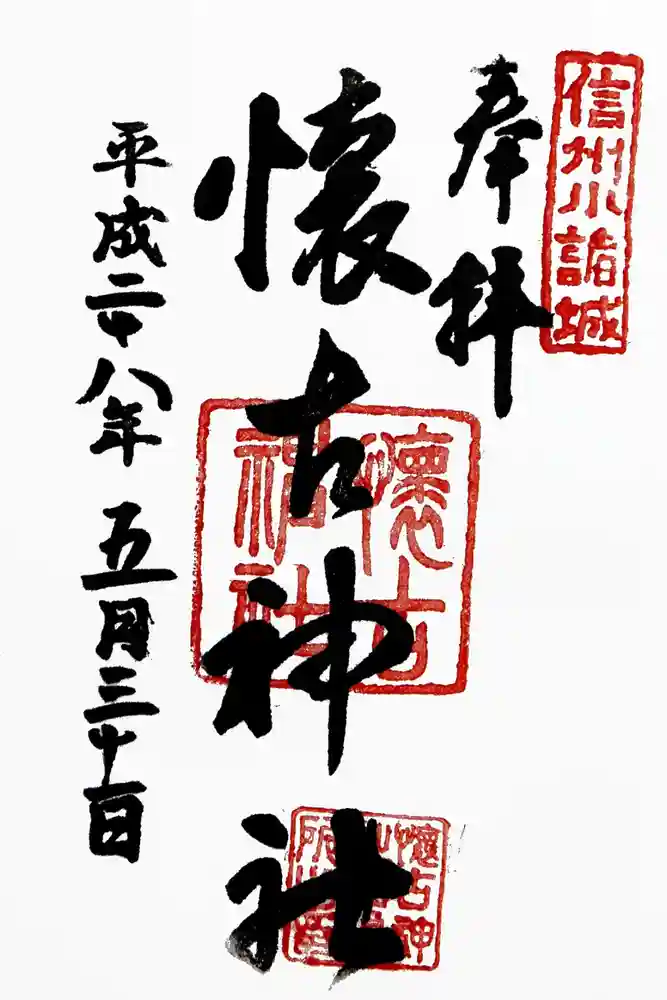 信州小諸城
奉拝
懐古神社
懐古神社
平成二十八年 五月三十一日